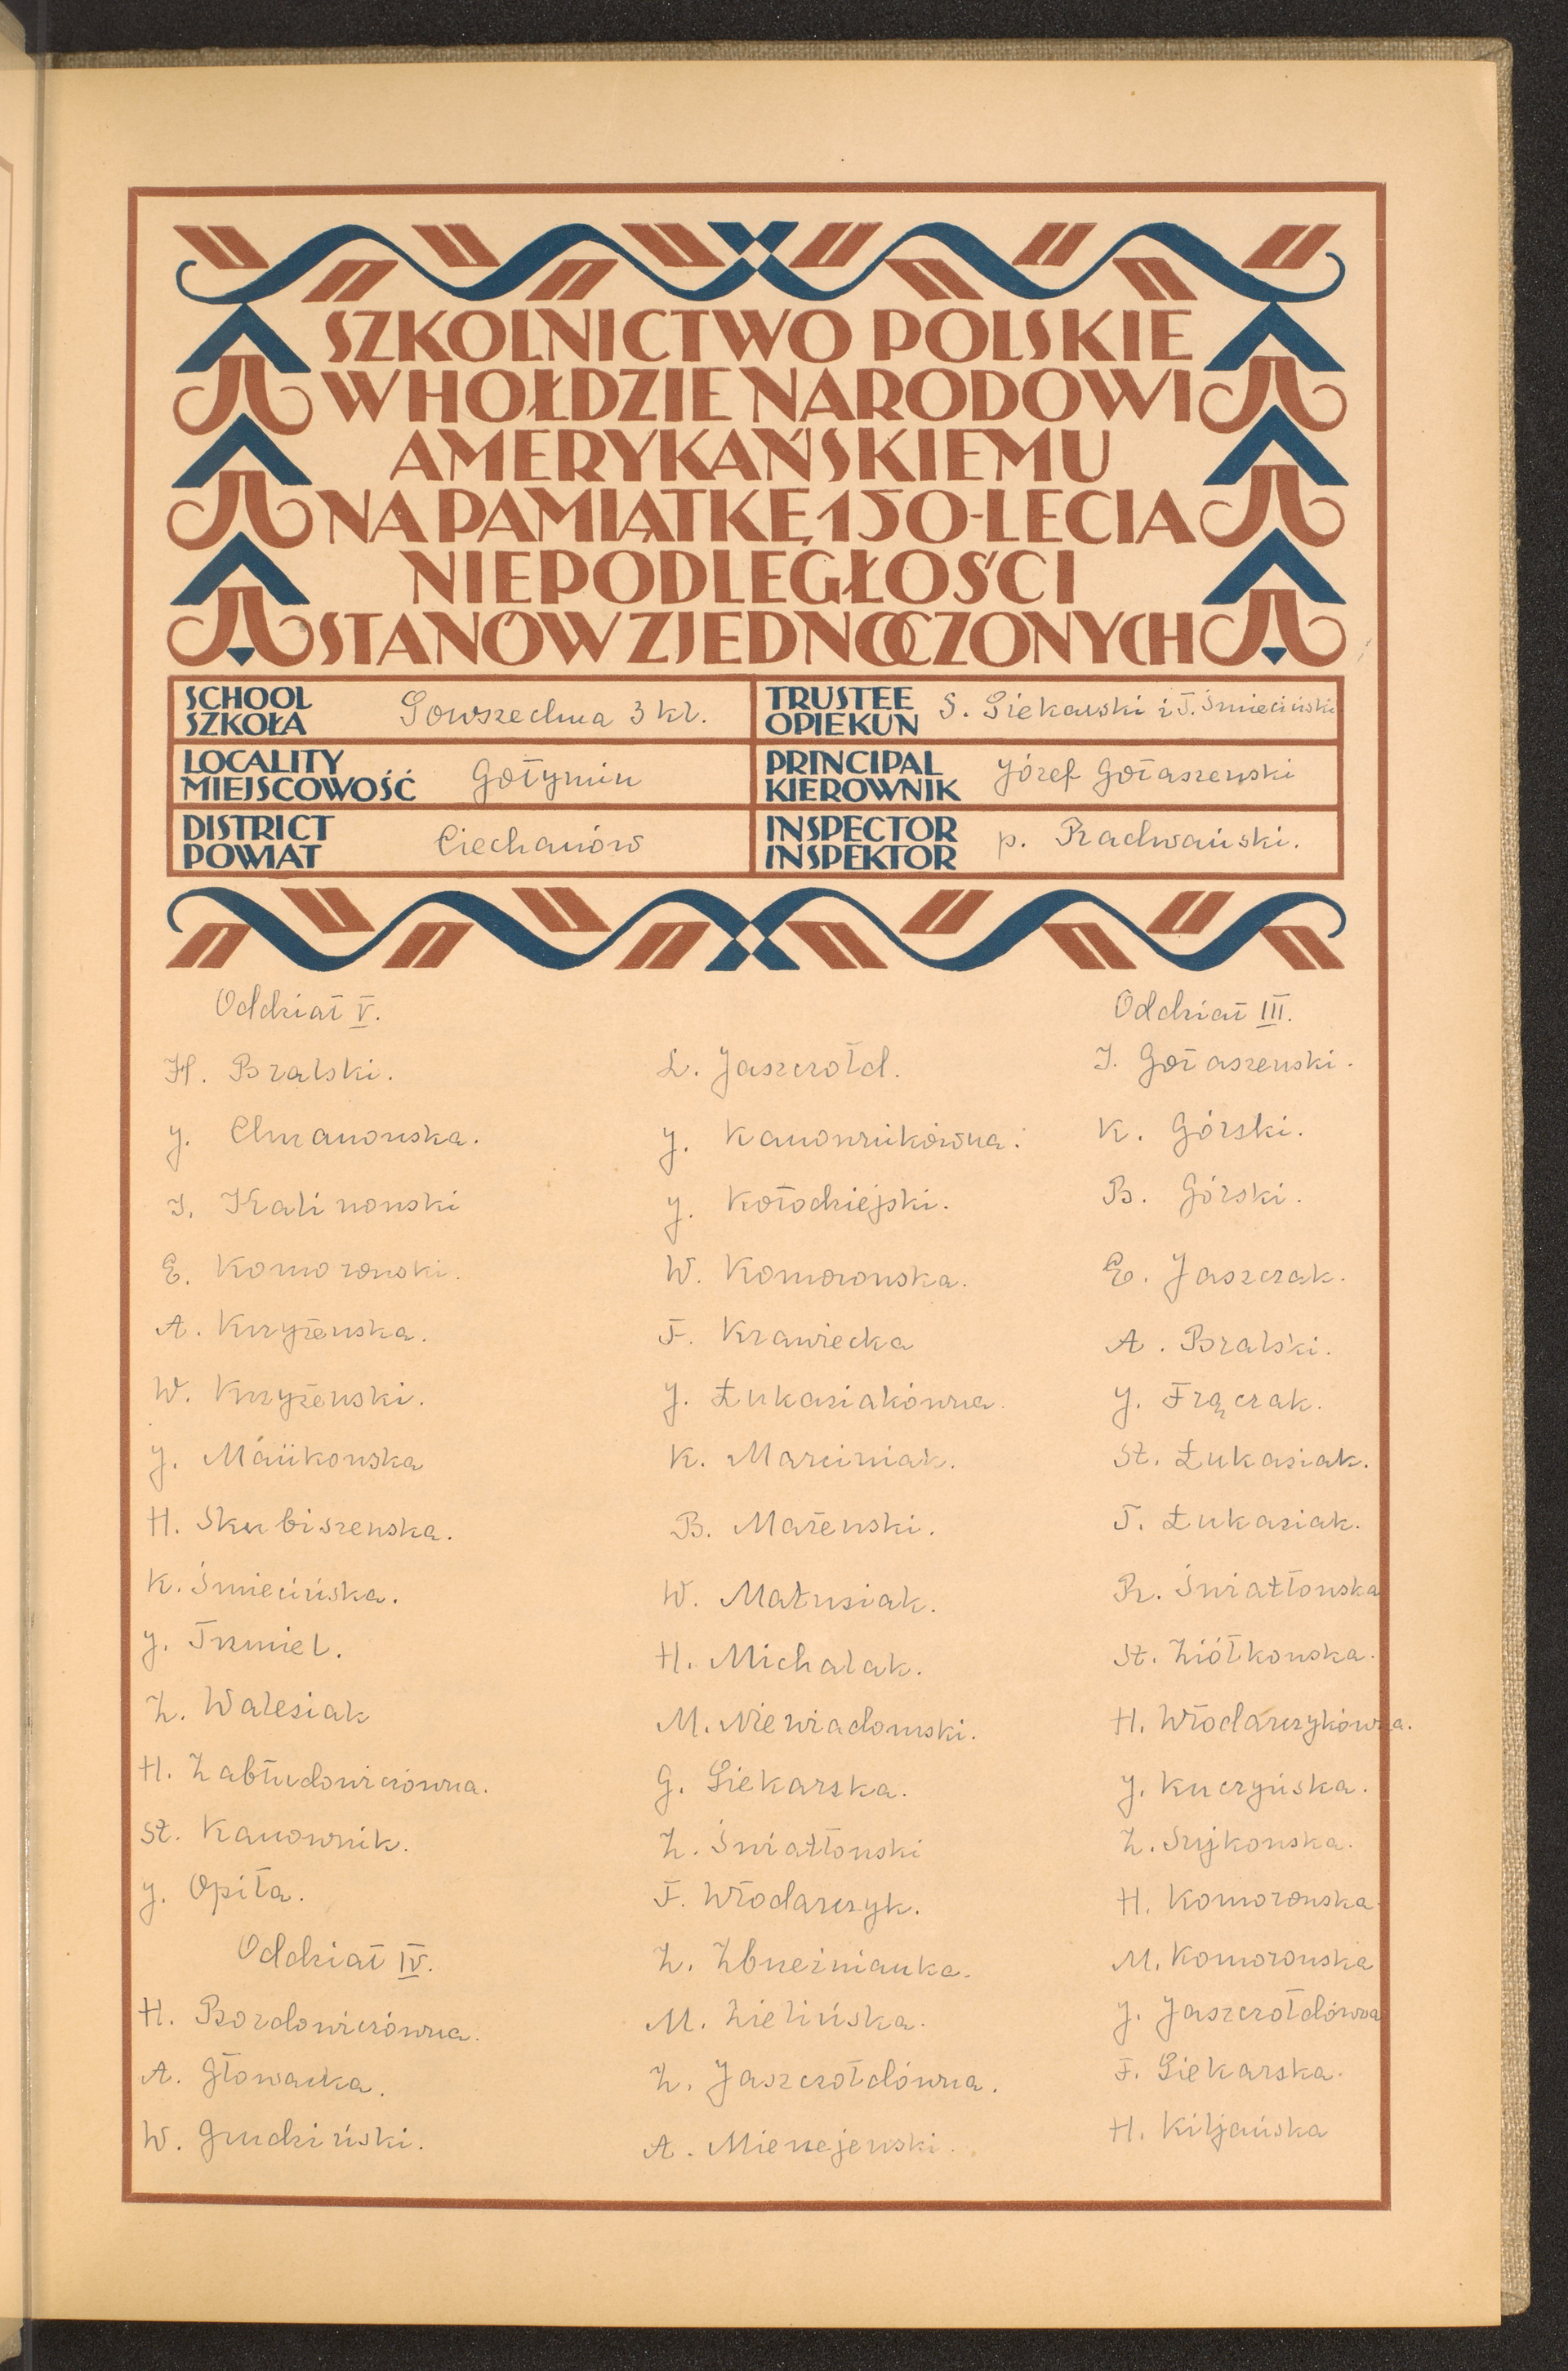 SZKOLNICTWO POLSKIE
W HOŁDZIE NARODOWI
AMERYKAŃSKIEMU
NA PAMIĄTKĘ 150-LECIA
NIEPODLEGŁOŚCI
STANÓW ZJEDNOCZONYCH
SCHOOL
SZKOŁA
Powszechna 3 kl.
TRUSTEE
OPIEKUN
S. Piekarski i T. Śmieciński
LOCALITY
MIEJSCOWOŚĆ
Gołymin
PRINCIPAL
KIEROWNIK
Józef Gołaszewski
DISTRICT
POWIAT
Ciechanów
INSPECTOR
INSPEKTOR
p. Radwański.
Oddział V.
H. Bralski.
J. Chmanowska.
I. Kalinowski
E. Komorowski.
A. Krzyżewska.
W. Krzyżewski.
J. Mańkowska
H. Skubiszewska.
K. Śmiecińska.
J. Trzmiel.
Z. Walesiak
H. Zabłudowiczówna.
St. Kanownik.
J. Opiła.
Oddział IV.
H. Bordowiczówna.
A. Głowacka.
W. Grudziński.
L. Jaszczołd.
J. Kanownikówna.
J. Kołodziejski.
W. Komorowska.
F. Krawiecka
J. Łukasiakówna.
K. Marciniak.
B. Mażewski.
W. Matusiak.
H. Michalak.
M. Niewiadomski.
G. Piekarska.
Z. Światłowski
F. Włodarczyk.
Z. Zbrzeźnianka.
M. Zielińska.
Z. Jaszczołdówna.
A. Mierzejewski.
Oddział III.
J. Gołaszewski.
K. Górski.
B. Górski.
E. Jaszczak.
A. Bralski.
J. Frączak.
St. Łukasiak.
T. Łukasiak.
R. Światłowska
St. Ziółkowska.
H. Włodarczykówna.
J. Kuczyńska.
Z. Sujkowska.
H. Komorowska
M. Komorowska
J. Jaszczołdówna
F. Piekarska.
H. Kiljańska